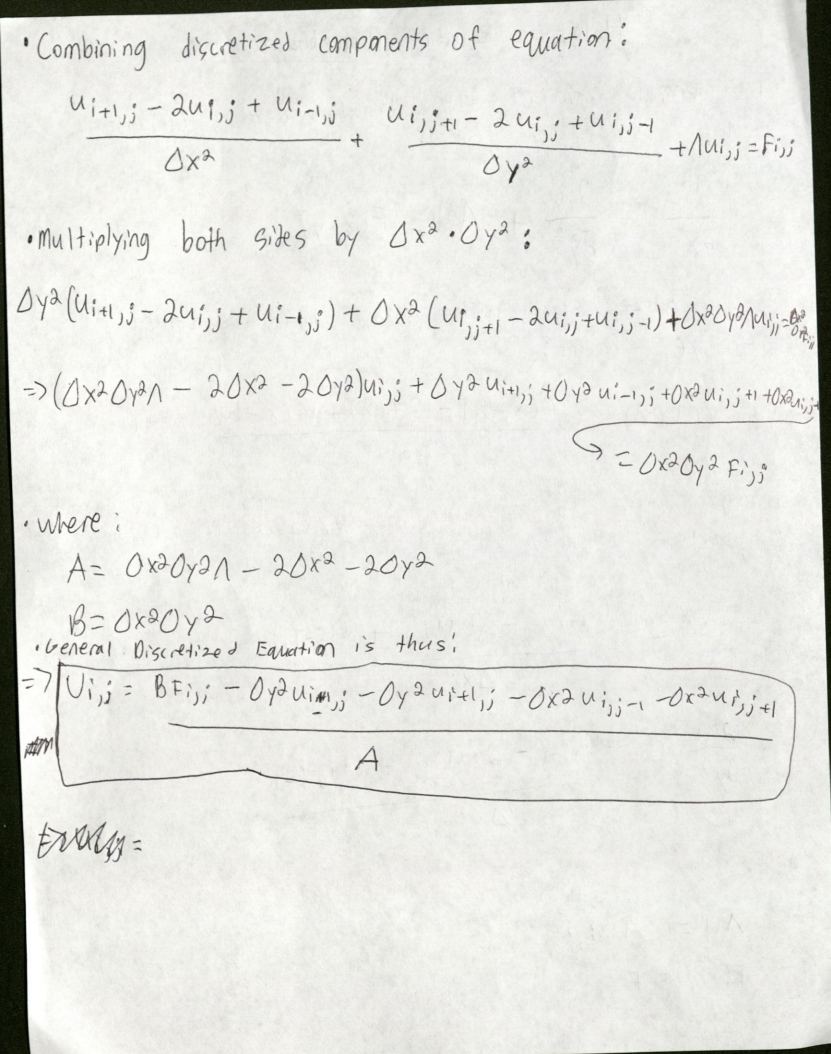 • Combining discretized components of equation:
(u_{i+1,j} - 2u_{i,j} + u_{i-1,j})/Δx² + (u_{i,j+1} - 2u_{i,j} + u_{i,j-1})/Δy² + Λu_{i,j} = F_{i,j}
• Multiplying both sides by Δx² · Δy² :
Δy²(u_{i+1,j} - 2u_{i,j} + u_{i-1,j}) + Δx²(u_{i,j+1} - 2u_{i,j} + u_{i,j-1}) + Δx²Δy²Λu_{i,j} = Δx²Δy²F_{i,j}
=> (Δx²Δy²Λ - 2Δx² - 2Δy²)u_{i,j} + Δy²u_{i+1,j} + Δy²u_{i-1,j} + Δx²u_{i,j+1} + Δx²u_{i,j-1}
= Δx²Δy²F_{i,j}
• where :
A = Δx²Δy²Λ - 2Δx² - 2Δy²
B = Δx²Δy²
• General Discretized Equation is thus:
=> U_{i,j} = (BF_{i,j} - Δy²u_{i-1,j} - Δy²u_{i+1,j} - Δx²u_{i,j-1} - Δx²u_{i,j+1})/A
=